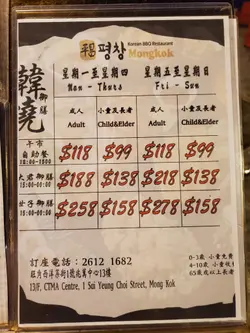 평창
Korean BBQ Restaurant
Mongkok
韓 御膳
燒
星期一至星期四 星期五至星期日
Mon - Thurs Fri - Sun
成人 小童及長者 成人 小童及長者
Adult Child&Elder Adult Child&Elder
午市
自助餐
$118 $99 $118 $99
大君御膳
$188 $138 $218 $138
世子御膳
$258 $158 $278 $158
訂座電話：2612 1682
旺角西洋菜街1號兆萬中心13樓
13/F, CTMA Centre, 1 Sai Yeung Choi Street, Mong Kok
0-3歲 小童免費
4-10歲 小童收
65歲或以上長者